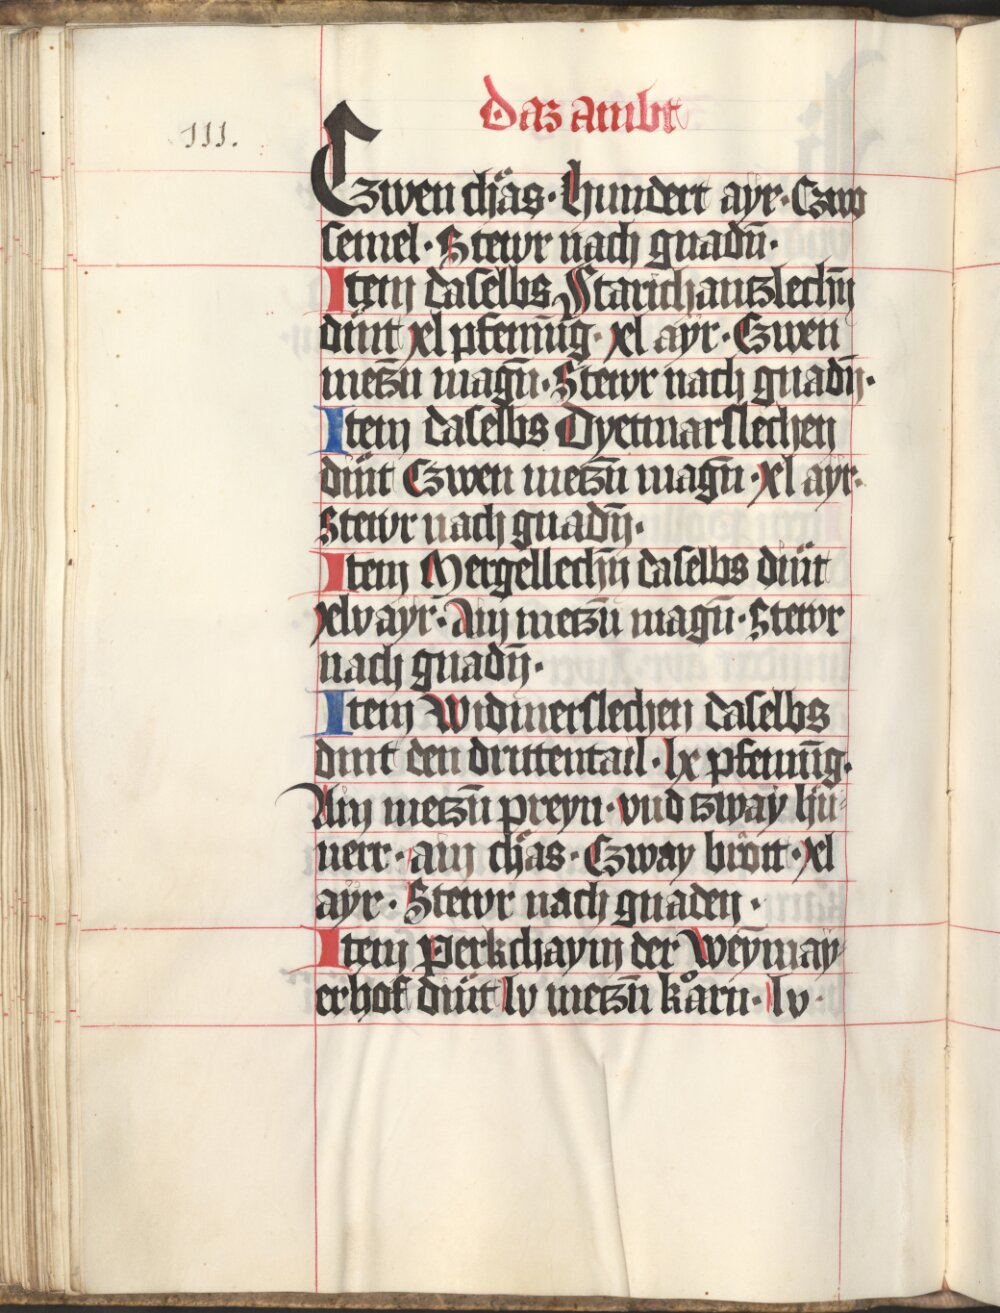 Das ambt
111.
Czwen chäs · hundert ayr · Czwo
semel · Stewr nach gnadn̄ ·
Item daselbs Starichantzlechn̄
dint xl pfenn̄ig · xl ayr · Czwen
metzn̄ magn̄ · Stewr nach gnadn̄ ·
Item daselbs Dyetmarslechen
dint Czwen metzn̄ magn̄ · xl ayr ·
Stewr nach gnadn̄ ·
Item Mergellechn̄ daselbs dint
xlv ayr · Ain metzn̄ magn̄ · Stewr
nach gnadn̄ ·
Item Widmerslechen daselbs
dint den drittentail · lx pfenn̄ig ·
Ain metzn̄ preyn · vnd tzway hu̇-
nerr · ain chäs · Czway brött · xl
ayr · Stewr nach gnaden ·
Item Perkchaym der Weymay-
erhof dint lv metzn̄ korn · lv ·